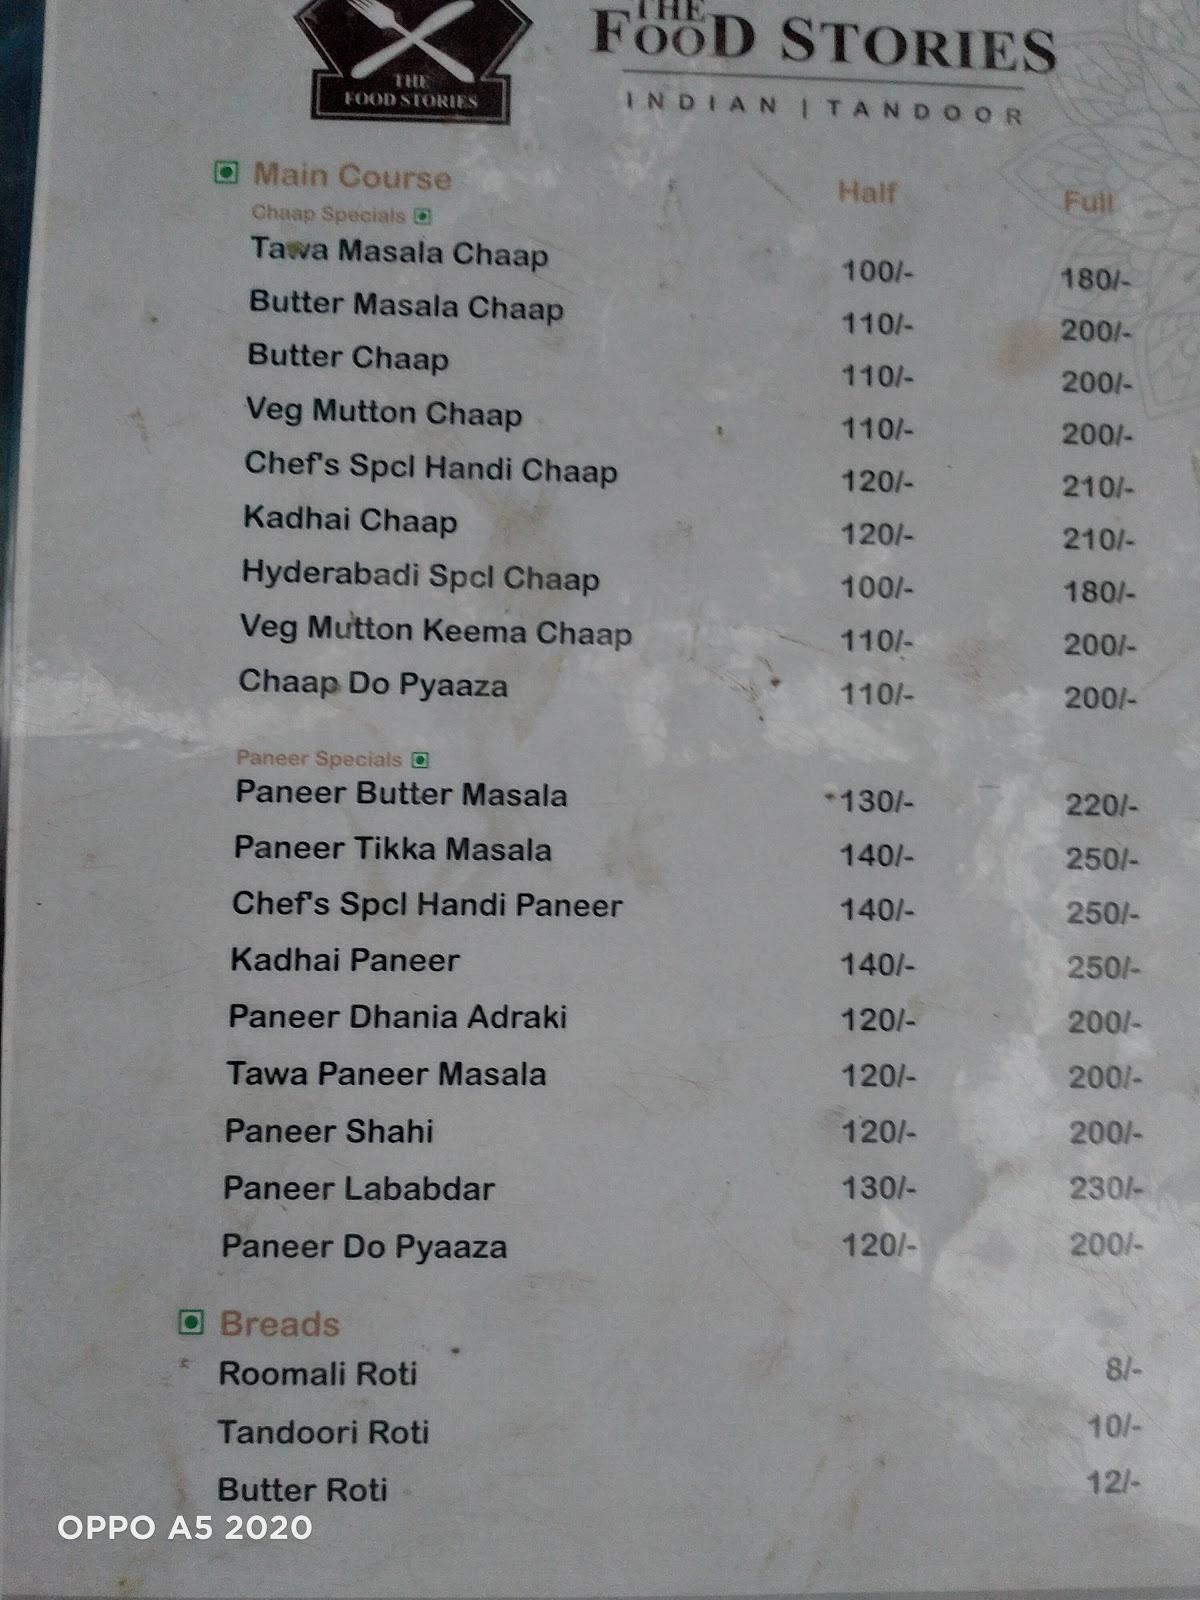 THE
FOOD STORIES
THE
FOOD STORIES
INDIAN | TANDOOR
Main Course Half Full
Chaap Specials
Tawa Masala Chaap 100/- 180/-
Butter Masala Chaap 110/- 200/-
Butter Chaap 110/- 200/-
Veg Mutton Chaap 110/- 200/-
Chef's Spcl Handi Chaap 120/- 210/-
Kadhai Chaap 120/- 210/-
Hyderabadi Spcl Chaap 100/- 180/-
Veg Mutton Keema Chaap 110/- 200/-
Chaap Do Pyaaza 110/- 200/-
Paneer Specials
Paneer Butter Masala 130/- 220/-
Paneer Tikka Masala 140/- 250/-
Chef's Spcl Handi Paneer 140/- 250/-
Kadhai Paneer 140/- 250/-
Paneer Dhania Adraki 120/- 200/-
Tawa Paneer Masala 120/- 200/-
Paneer Shahi 120/- 200/-
Paneer Lababdar 130/- 230/-
Paneer Do Pyaaza 120/- 200/-
Breads
Roomali Roti 8/-
Tandoori Roti 10/-
Butter Roti 12/-
OPPO A5 2020